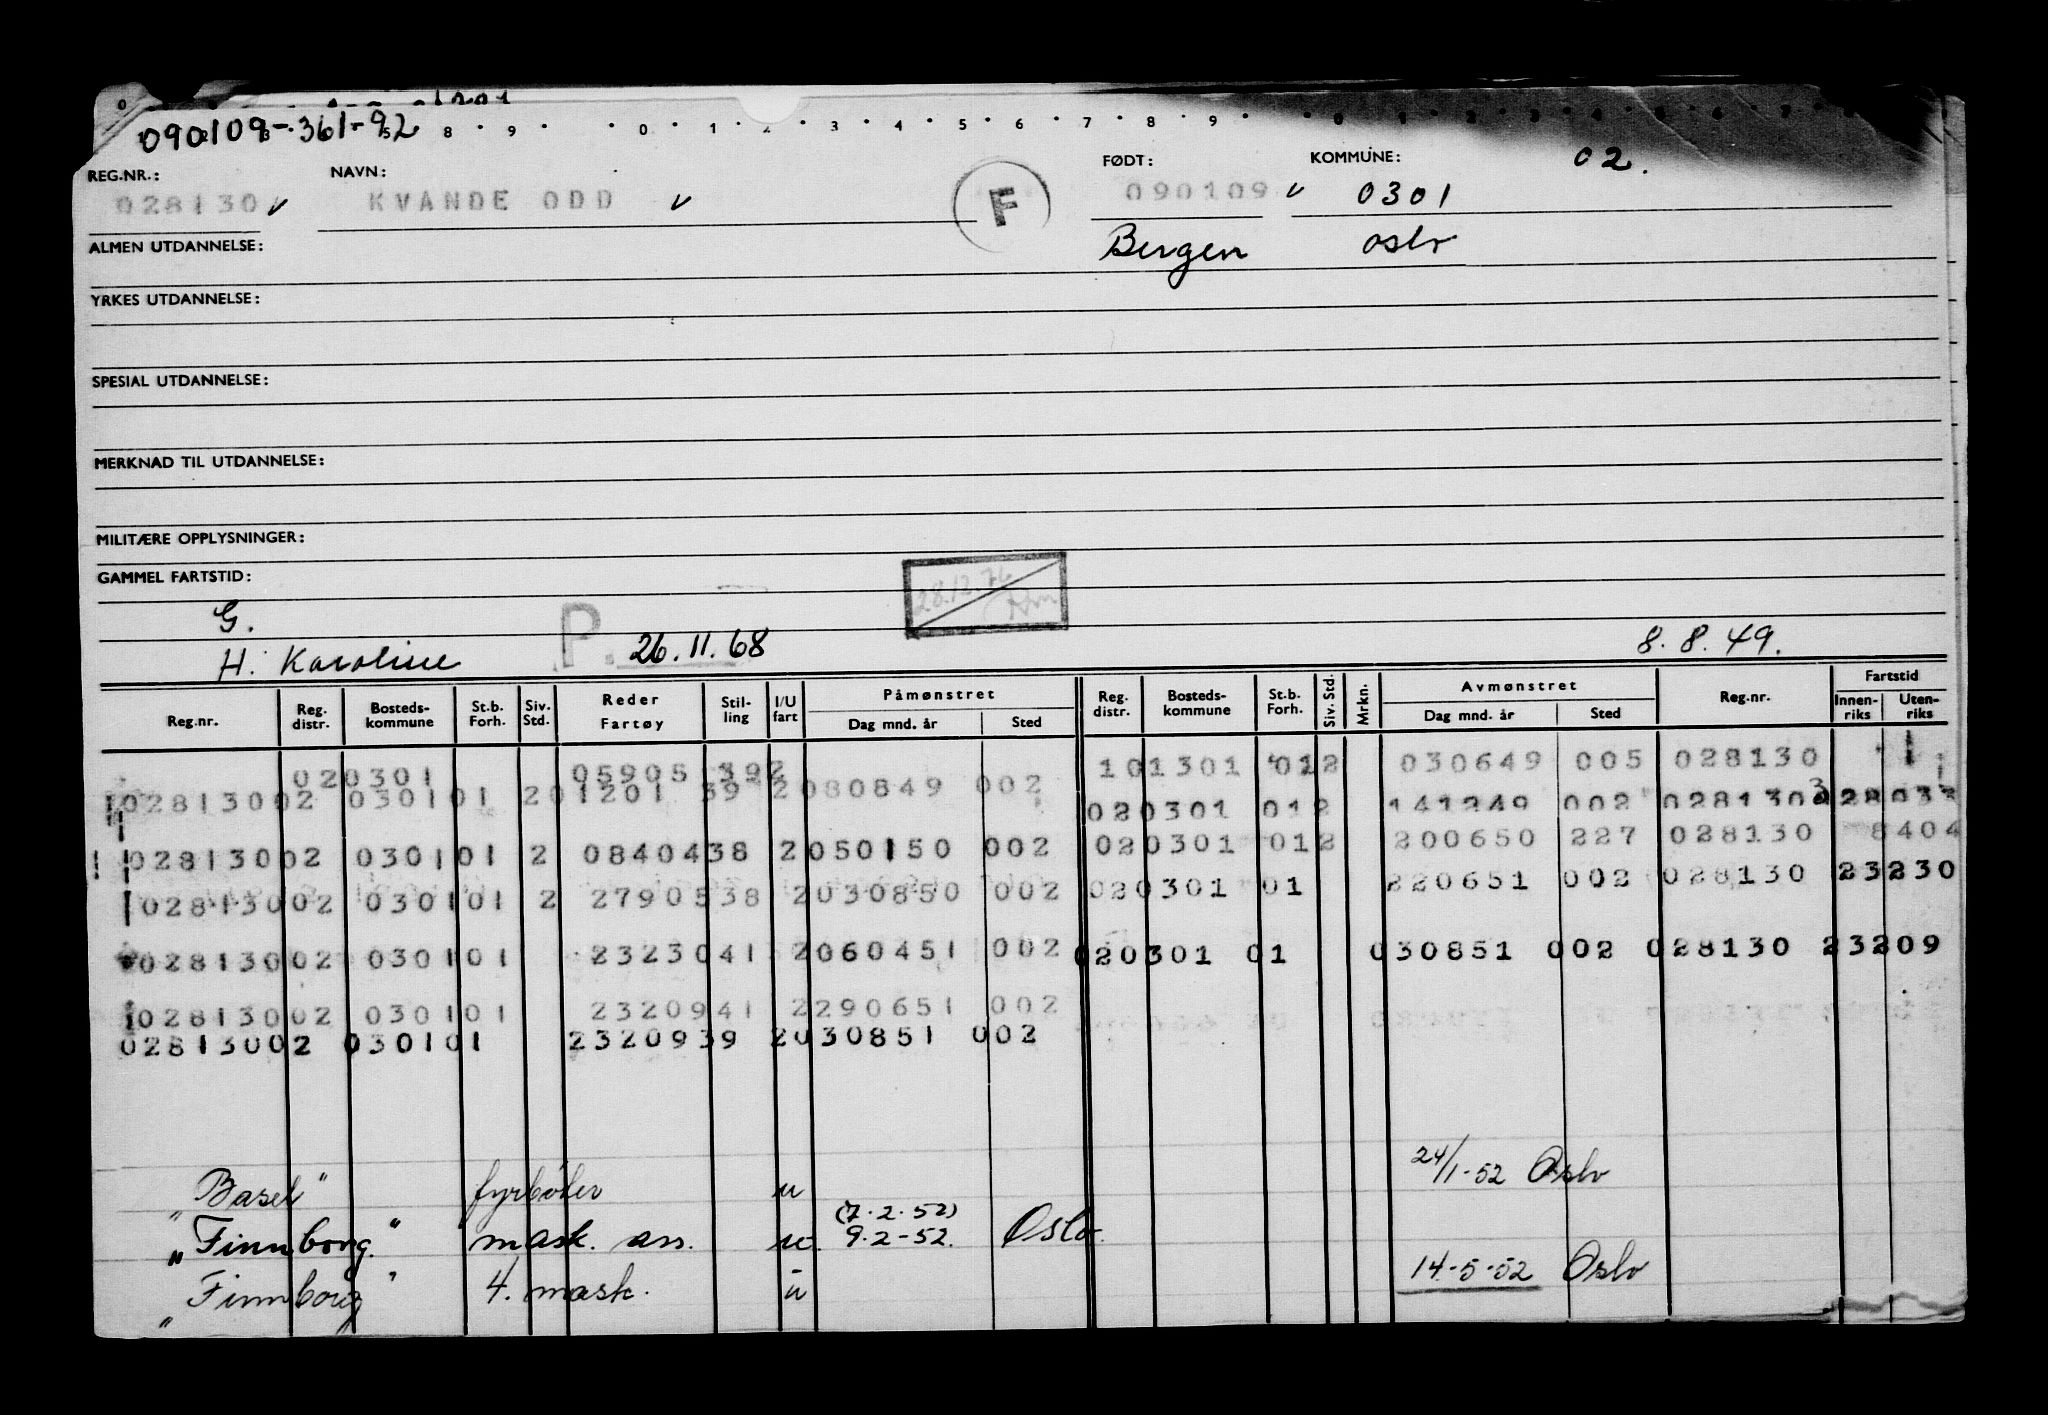 090109-361-92
8 · 9 · · 0 · 1 · 2 · 3 · 4 · 5 · 6 · 7 · 8 · 9 · · 0 · 1 · 2 · 3 · 4 · 5 · 6 · 7
REG.NR.: NAVN: FØDT: KOMMUNE: 02.
028130 KVANDE ODD F 090109 0301
ALMEN UTDANNELSE: Bergen Oslo
YRKES UTDANNELSE:
SPESIAL UTDANNELSE:
MERKNAD TIL UTDANNELSE:
MILITÆRE OPPLYSNINGER:
GAMMEL FARTSTID: 28.12.76
G.
H. Karoline P. 26.11.68 8.8.49.
Reg.nr. Reg. distr. Bosteds-kommune St.b. Forh. Siv. Std. Reder Fartøy Stil-ling I/U fart Påmønstret Dag mnd. år Sted Reg. distr. Bosteds-kommune St.b. Forh. Siv. Std. Mrkn. Avmønstret Dag mnd. år Sted Reg.nr. Fartstid Innen-riks Uten-riks
020301 05905 392 101301 012 030649 005 028130
02813002 030101 201201 39 2080849 002 020301 012 141249 002 028130
02813002 030101 2 0840438 2050150 002 020301 012 200650 227 028130 8404
02813002 030101 2 2790538 2030850 002 020301 01 220651 002 028130 23230
02813002 030101 2323041 2060451 002 020301 01 030851 002 028130 23209
02813002 030101 2320941 2290651 002
02813002 030101 2320939 2030851 002
"Basel" fyrbøter u 24/1-52 Oslo
(7.2.52)
"Finnborg" mask. ass. u. 9.2-52. Oslo.
"Finnborg" 4. mask. u 14-5-52 Oslo